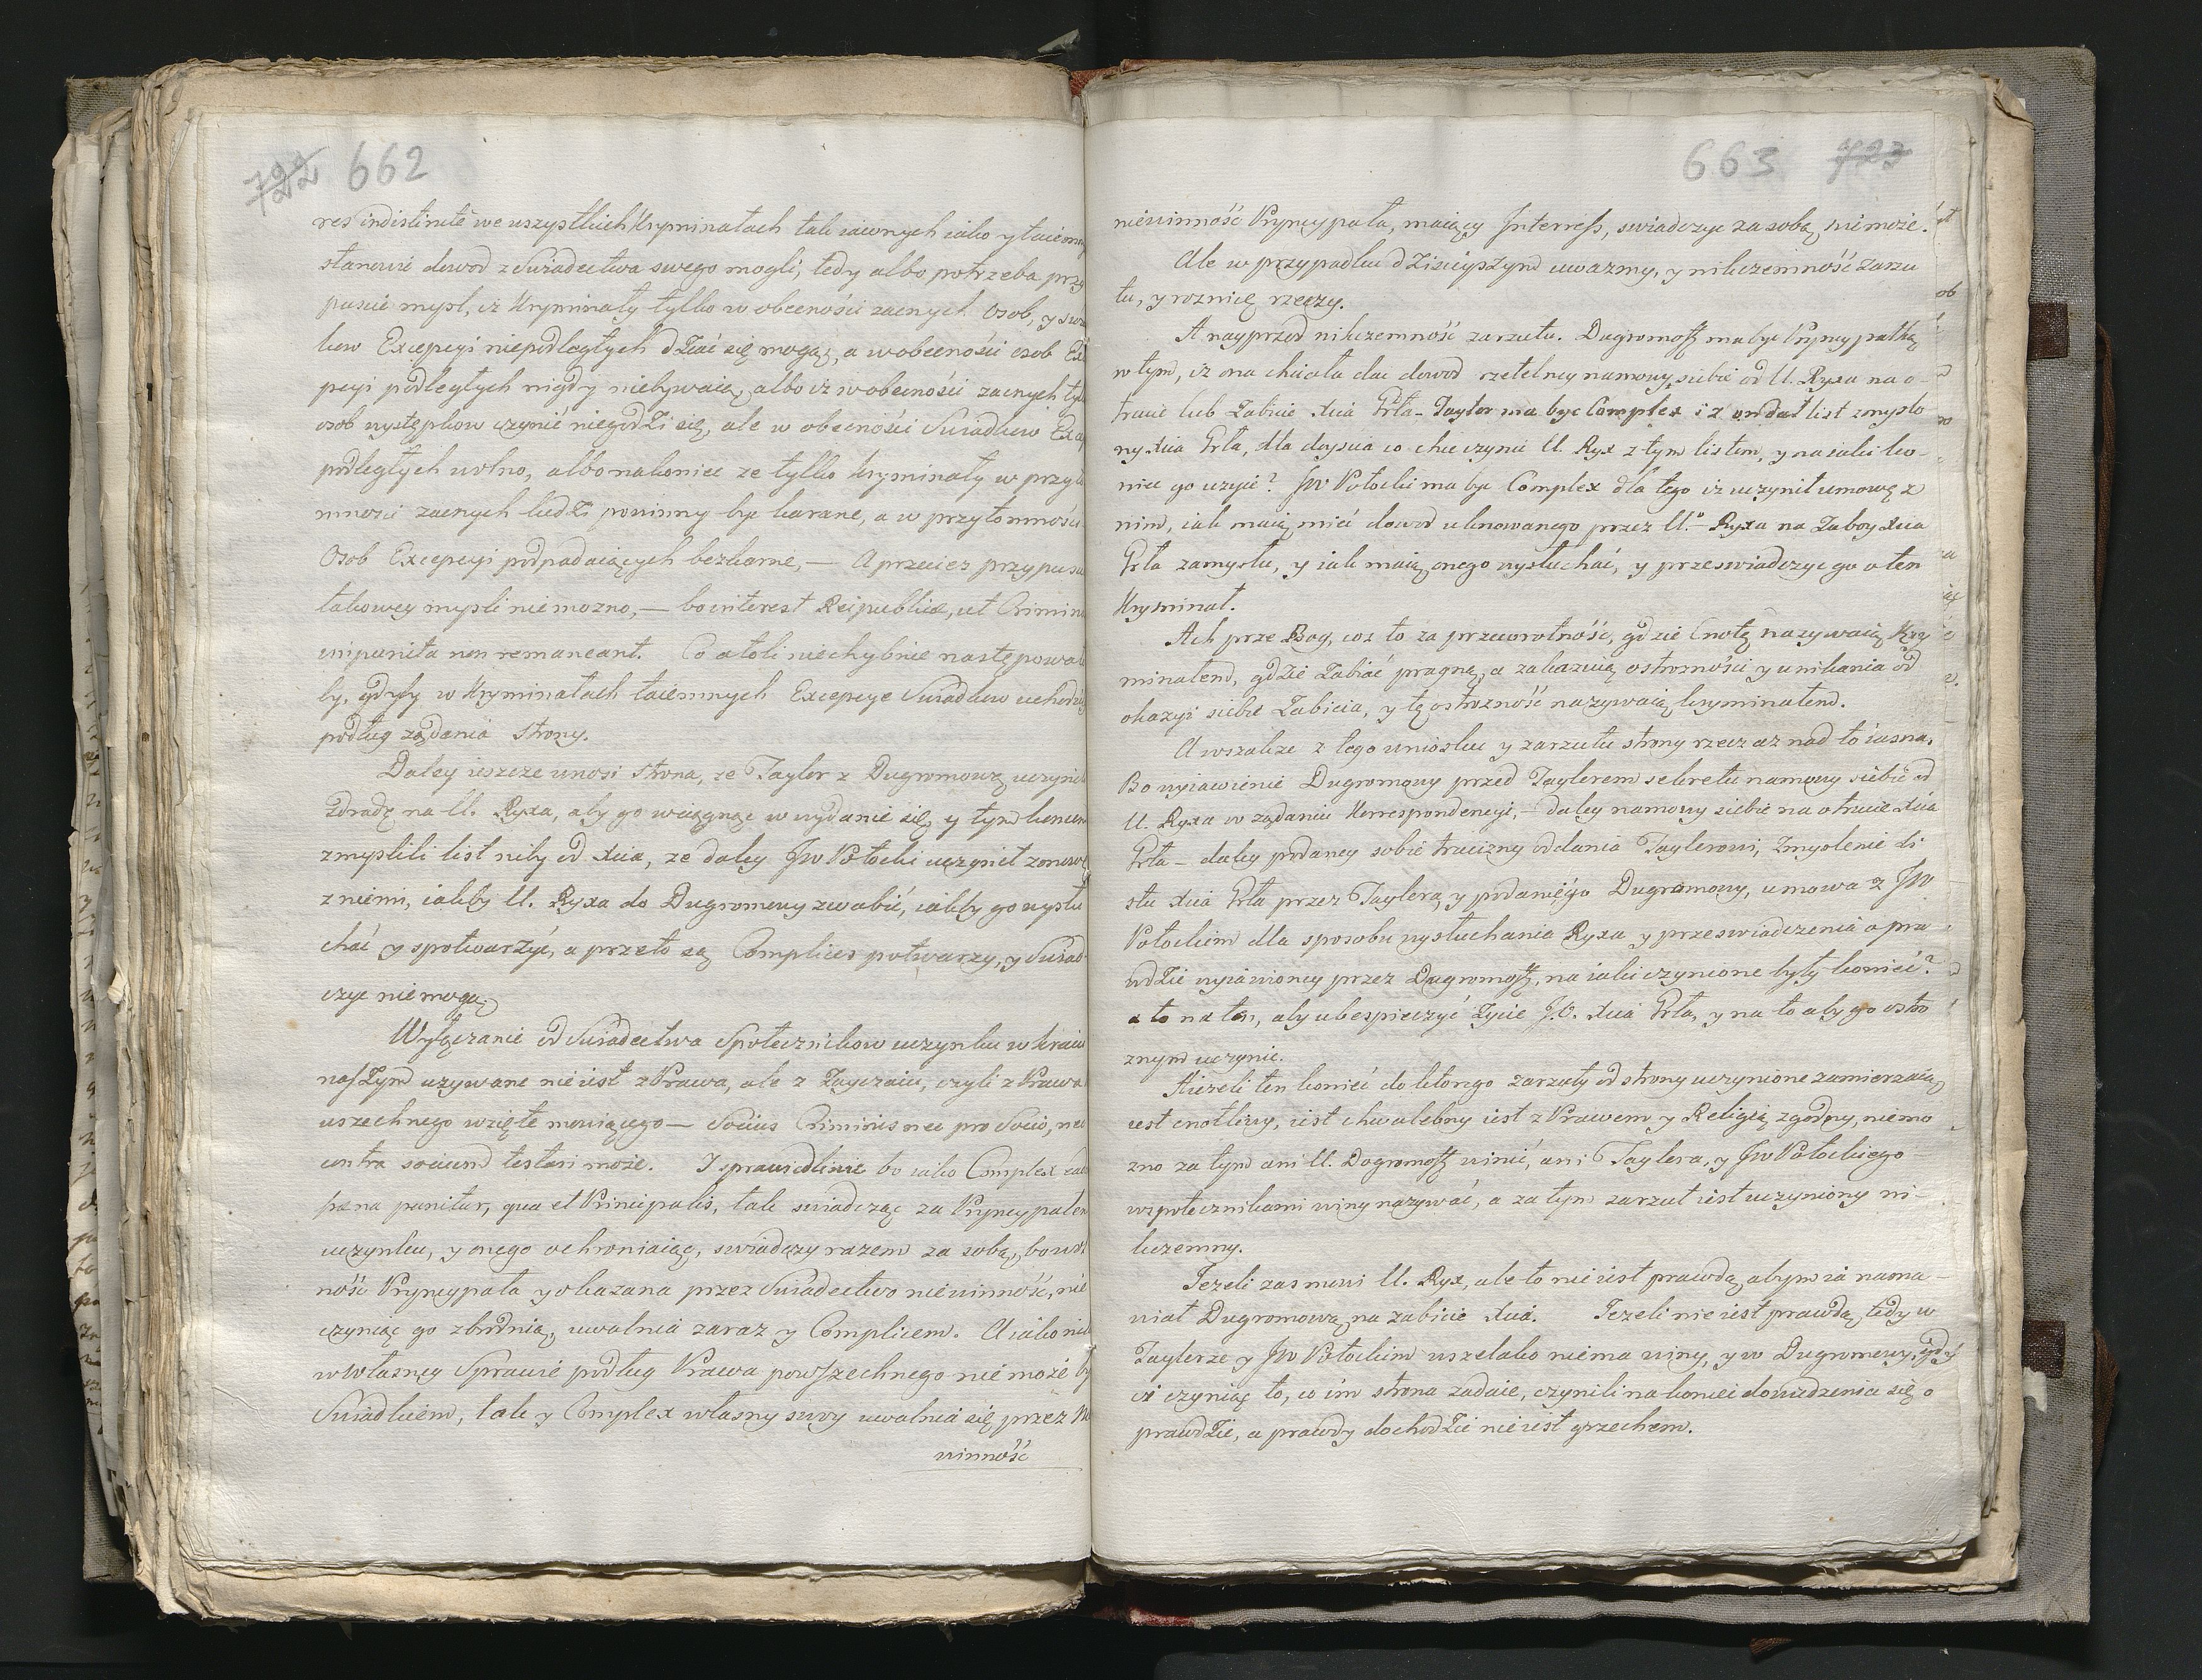 722 662
res indistincte we wszystkich Kryminałach tak iawnych iako y taiemny
stanowić dowod z Swiadectwa swego mogli, tedy albo potrzeba przy
puscic mysl, iż Kryminały tylko w obecności zacnych Osob, y swia
kow Excepcyi niepodległych dziać się mogą, a w obecności osob Ex
pcyi podległych nigdy niebywaią, albo iz w obecności zacnych tyl
osob występkow czynić niegodzi się, ale w obecności Swiadkow Exc
podległych wolno, albo nakoniec ze tylko Kryminały w przyto
mnosci zacnych ludzi powinny byc karane, a w przytomności
Osob Excepcyi podpadaiących bezkarne, — A przeciez przypusc
takowey mysli nie mozno, — bo interest Reipublicæ, ut Crimin
impunita non remaneant. Co atoli niechybnie następowa
by, gdyby w Kryminałach taiemnych Excepcye Swiadkow uchodziły
podług ządania Strony.
Daley ieszcze wnosi Strona, ze Taylor z Dugromową uczynili
zdradę na U. Ryxa, aby go wciągnąc w wydanie się, y tym koncem
zmyslili list niby od Xcia, ze daley JW Potocki uczynił zmowę
z niemi, iakby U. Ryxa do Dugromowy zwabić, iakby go wysłu
chać y spotwarzyć, a przeto są Complices potwarzy, y Swiad
czyc nie mogą.
Wyłączanie od Swiadectwa Społecznikow uczynku w kraiu
naszym uzywane nie iest z Prawa, ale z Zwyczaiu, czyli z Prawa
wszechnego wzięte mowiącego — Socius Criminis nec pro Socio, nec
contra socium testari może. I sprawiedliwie bo iako Complex ead
pæna punitur, qua et Principalis, tak swiadcząc za Pryncypałem
uczynku, y onego ochroniaiąc, swiadczy razem za sobą, bo wol
ność Pryncypała y okazana przez Swiadectwo niewinność, nie
czyniąc go zbrodnią, uwalnia zaraz y Complicem. A iako nikt
w własney Sprawie podług Prawa powszechnego nie może by
Swiadkiem, tak y Complex własny swoy uwalnia się przez Nie
winność
663 723
niewinność Pryncypała, maiący Interess, swiadczyc za sobą nie może.
Ale w przypadku dzisieyszym uwazmy, y nikczemność zarzu
tu, y roznicę rzeczy.
A nayprzod nikczemność zarzutu. Dugromoss ma byc Pryncypałką
w tym, iz ona chciała dac dowod rzetelney namowy siebie od U. Ryxa na o-
trucie lub Zabicie Xcia Grła – Taylor ma byc Complex iz on dał list zmyslo
ny Xcia Grła, dla doyscia co chce czynic U. Ryx z tym listem, y na iaki ko-
niec go uzyie? JW Potocki ma byc Complex dla tego iz uczynił umowę z
nim, iak maią mieć dowod uknowanego przez U. Ryxa na Zaboy Xcia
Grła zamysłu, y iak maią onego wysłuchać, y przeswiadczyc go o ten
Kryminał.
Ach prze Bog, coz to za przewrotność, gdzie Cnotę nazywaią Kry
minałem, gdzie Zabiać pragną, a zakazuią ostrozności y unikania od
okazyi siebie Zabicia, y tę ostrozność nazywaią kryminałem.
A wszakze z tego wniosku y zarzutu strony rzecz az nad to iasna,
Bo wyiawienie Dugromowy przed Taylerem sekretu namowy siebie od
U. Ryxa w ządaniu Korrespondencyi, – daley namowy siebie na otrucie Xcia
Grła – daley podaney sobie trucizny oddania Taylerowi, Zmyslenie li
stu Xcia Grła przez Taylera, y podanie go Dugromowy, umowa z JW
Potockim dla sposobu wysłuchania Ryxa y przeswiadczenia o pra
wdzie wyiawioney przez Dugromoss, na iaki czynione były koniec?
a to na ten, aby ubespieczyć Zycie J.O. Xcia Grła, y na to aby go ostro
znym uczynic.
A iezeli ten koniec do ktorego zarzuty od strony uczynione zamierzaią
iest cnotliwy, iest chwalebny iest z Prawem y Religią zgodny, niemo
zno za tym ani U. Dogromoss winić, ani Taylera, y JW Potockiego
wspołecznikami winy nazywać, a za tym zarzut iest uczyniony ni-
kczemny.
Jezeli zas mowi U. Ryx, ale to nie iest prawdą, abym ia nama-
wiał Dugromową na zabicie Xcia. Jezeli nie iest prawdą, tedy w
Taylerze y JW Potockim wszelako niema winy, y w Dugromowy, gdy
ci czyniąc to, co im strona zadaie, czynili na koniec dowiedzenia się o
prawdzie, a prawdy dochodzić nie iest grzechem.